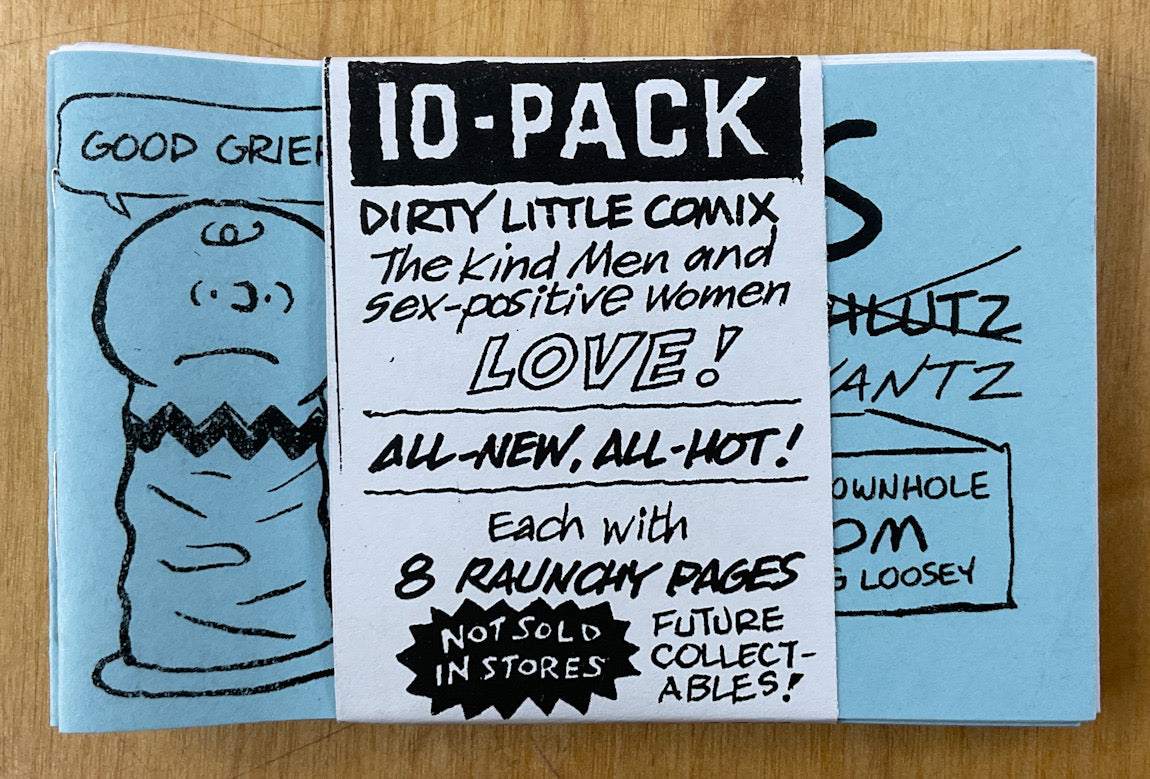 GOOD GRIEF
10-PACK
DIRTY LITTLE COMIX
The kind Men and
sex-positive women
LOVE!
ALL-NEW, ALL-HOT!
Each with
8 RAUNCHY PAGES
NOT SOLD
IN STORES
FUTURE
COLLECT-
ABLES!
S
LUTZ
ANTZ
OWNHOLE
OM
G LOOSEY